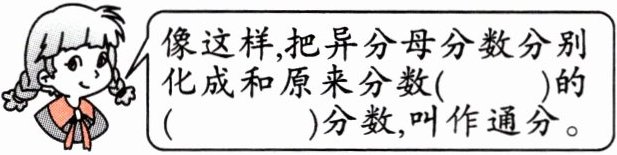 像这样,把异分母分数分别
化成和原来分数(　　)的
(　　　)分数,叫作通分。